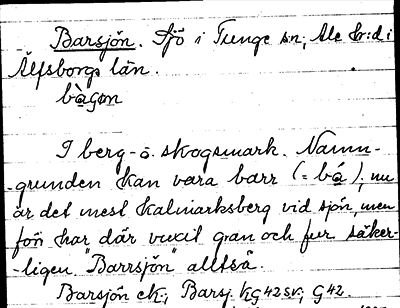 Barsjön. Sjö i Tunge sn, Ale hr:d i
Älfsborgs län.
I berg- o. skogsmark. Namn-
-grunden kan vara barr (= bá), nu
är det mest kalmarksberg vid sjön, men
förr har där vuxit gran och fur säker-
-ligen. "Barrsjön" alltså.
Barsjön ek; Barsj. KG42sv; G42.